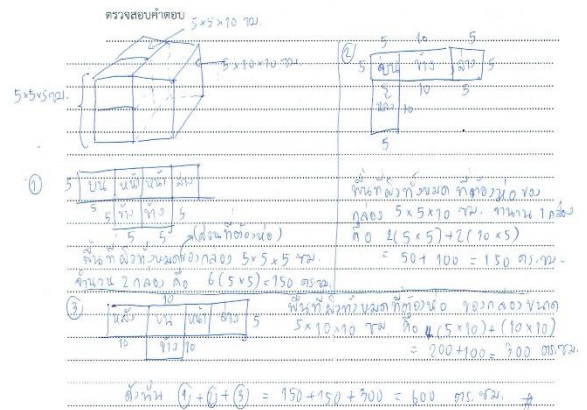 ตรวจสอบคำตอบ
5×5×10 ซม.
5×10×10 ซม.
5×5×5 ซม.
② 5 10 5
5 บน ข้าง ล่าง 5
5 10 5
หลัง 10
5
① 5 บน หน้า หน้า ล่าง
5 ข้าง ข้าง 5
5 5 (ส่วนที่ต้องห่อ)
พื้นที่ผิวทั้งหมดของกล่อง 5×5×5 ซม.
จำนวน 2 กล่อง คือ 6(5×5)=150 ตร.ซม.
พื้นที่ผิวทั้งหมด ที่ต้องห่อ ของ
กล่อง 5×5×10 ซม. จำนวน 1 กล่อง
คือ 2(5×5)+2(10×5)
= 50+100 = 150 ตร.ซม.
③ 10
หลัง บน หน้า ล่าง 5
10 ข้าง 10
พื้นที่ผิวทั้งหมดที่ต้องห่อ ของกล่องขนาด
5×10×10 ซม คือ 4(5×10)+(10×10)
= 200+100 = 300 ตร.ซม.
ดังนั้น ①+②+③ = 150+150+300 = 600 ตร.ซม. #